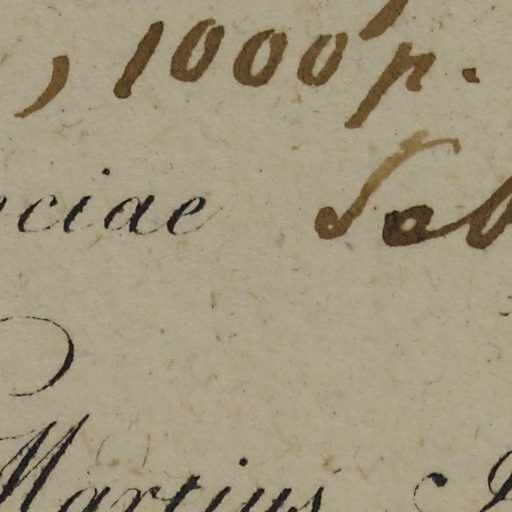 , 1000 p.
ciae Seb
Martius